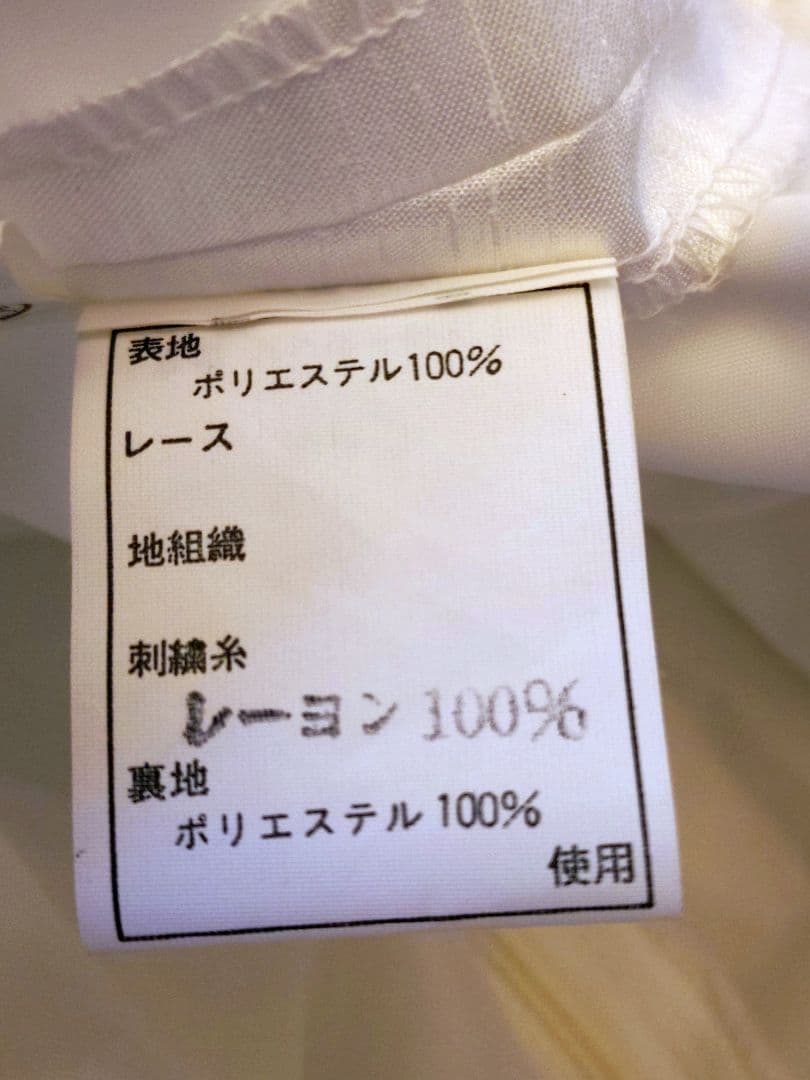 表地
ポリエステル100%
レース
地組織
刺繍糸
レーヨン 100%
裏地
ポリエステル 100%
使用